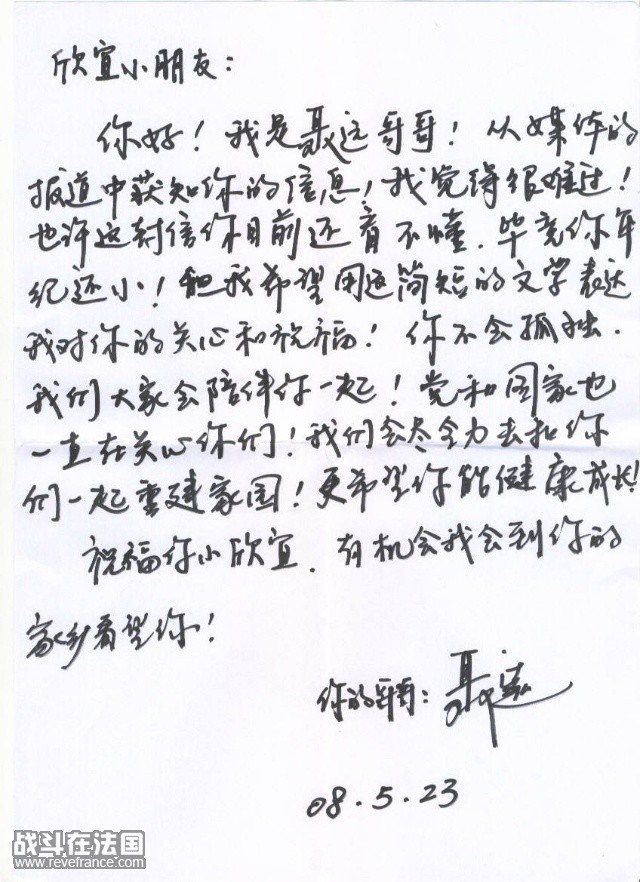 欣宜小朋友：
你好！我是聂远哥哥！从媒体的
报道中获知你的信息，我觉得很难过！
也许这封信你目前还看不懂．毕竟你年
纪还小！但我希望用这简短的文字表达
我对你的关心和祝福！你不会孤独．
我们大家会陪伴你一起！党和国家也
一直在关心你们！我们会尽全力去和你
们一起重建家园！更希望你能健康成长！
祝福你小欣宜．有机会我会到你的
家乡看望你！
你的哥哥：聂远
08.5.23
战斗在法国
www.revefrance.com